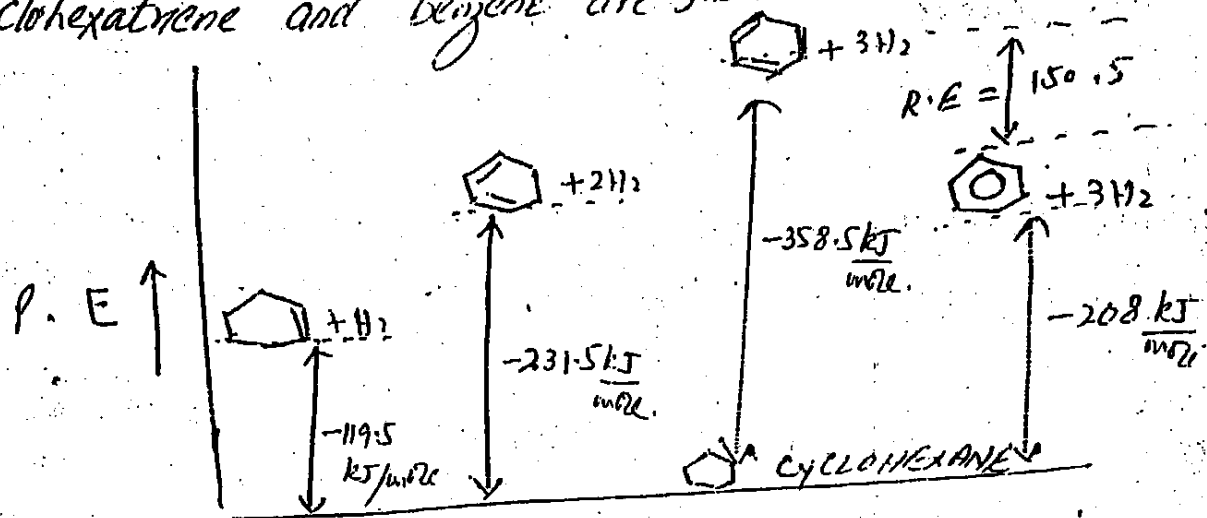 clohexatriene and benzene are
+ 3H2
R.E = 150.5
+2H2
+3H2
-358.5 kJ
mole.
P. E
+H2
-231.5 kJ
mole.
-208 kJ
mole.
-119.5
kJ/mole
CYCLOHEXANE